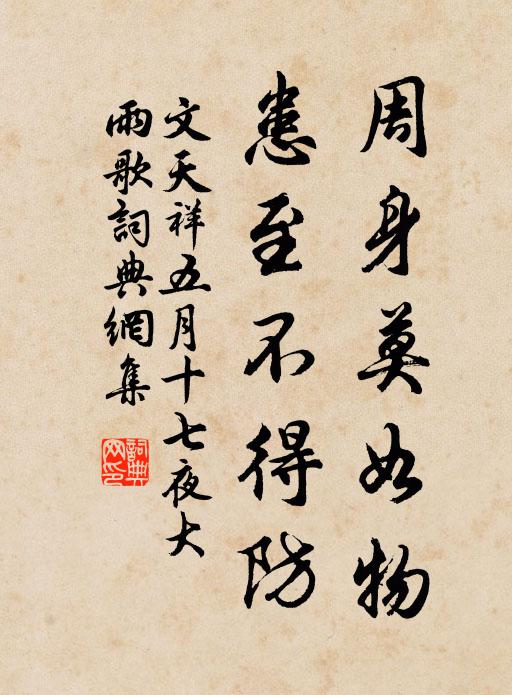 周身莫如物
患至不得防
文天祥五月十七夜大
雨歌詞典網集
詞典网印